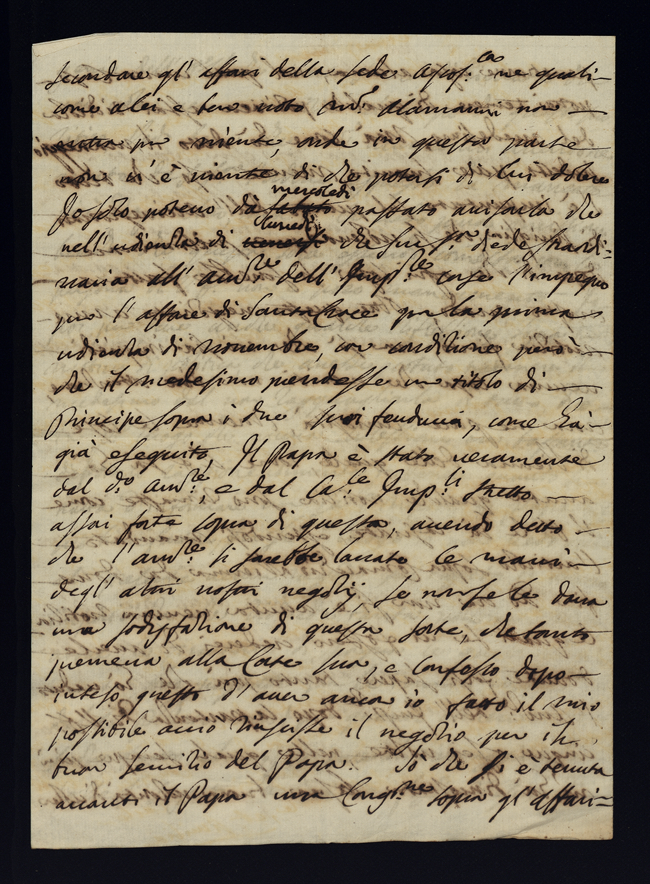 secondare gl' affari della sede Apos.ca ne quali
come a lei è ben noto Alamanni non
entra per niente, onde in questa parte
non v'è niente di che potersi di lui dolere
Io solo potevo da mercoledi passato avisarla che
nell'udienza di lunedi che Sua S.tà diede straordi-
naria all' Amb.re dell' Imp.re corse l'impegno
per l'affare di Santa Croce per la prima
udienza di novembre, con conditione però
che il medesimo prendesse un titolo di
Principe sopra i due suoi feudi, come hà
già eseguito, Il Papa è stato veramente
dal d.o Amb.re, e dal Ca.le Imp.li stretto
assai forte sopra di questa, avendo detto
che l'Amb.re si sarebbe lavato le mani
degl' altri nostri negotij, se non se le dava
una sodisfazione di questa sorte, che tanto
premeva alla Corte sua, e confesso dopo
inteso questo d'aver anco io fatto il mio
possibile acciò riuscisse il negotio per il
buon servitio del Papa. So che si è tenuta
avanti il Papa una Cong.ne sopra gl' affari